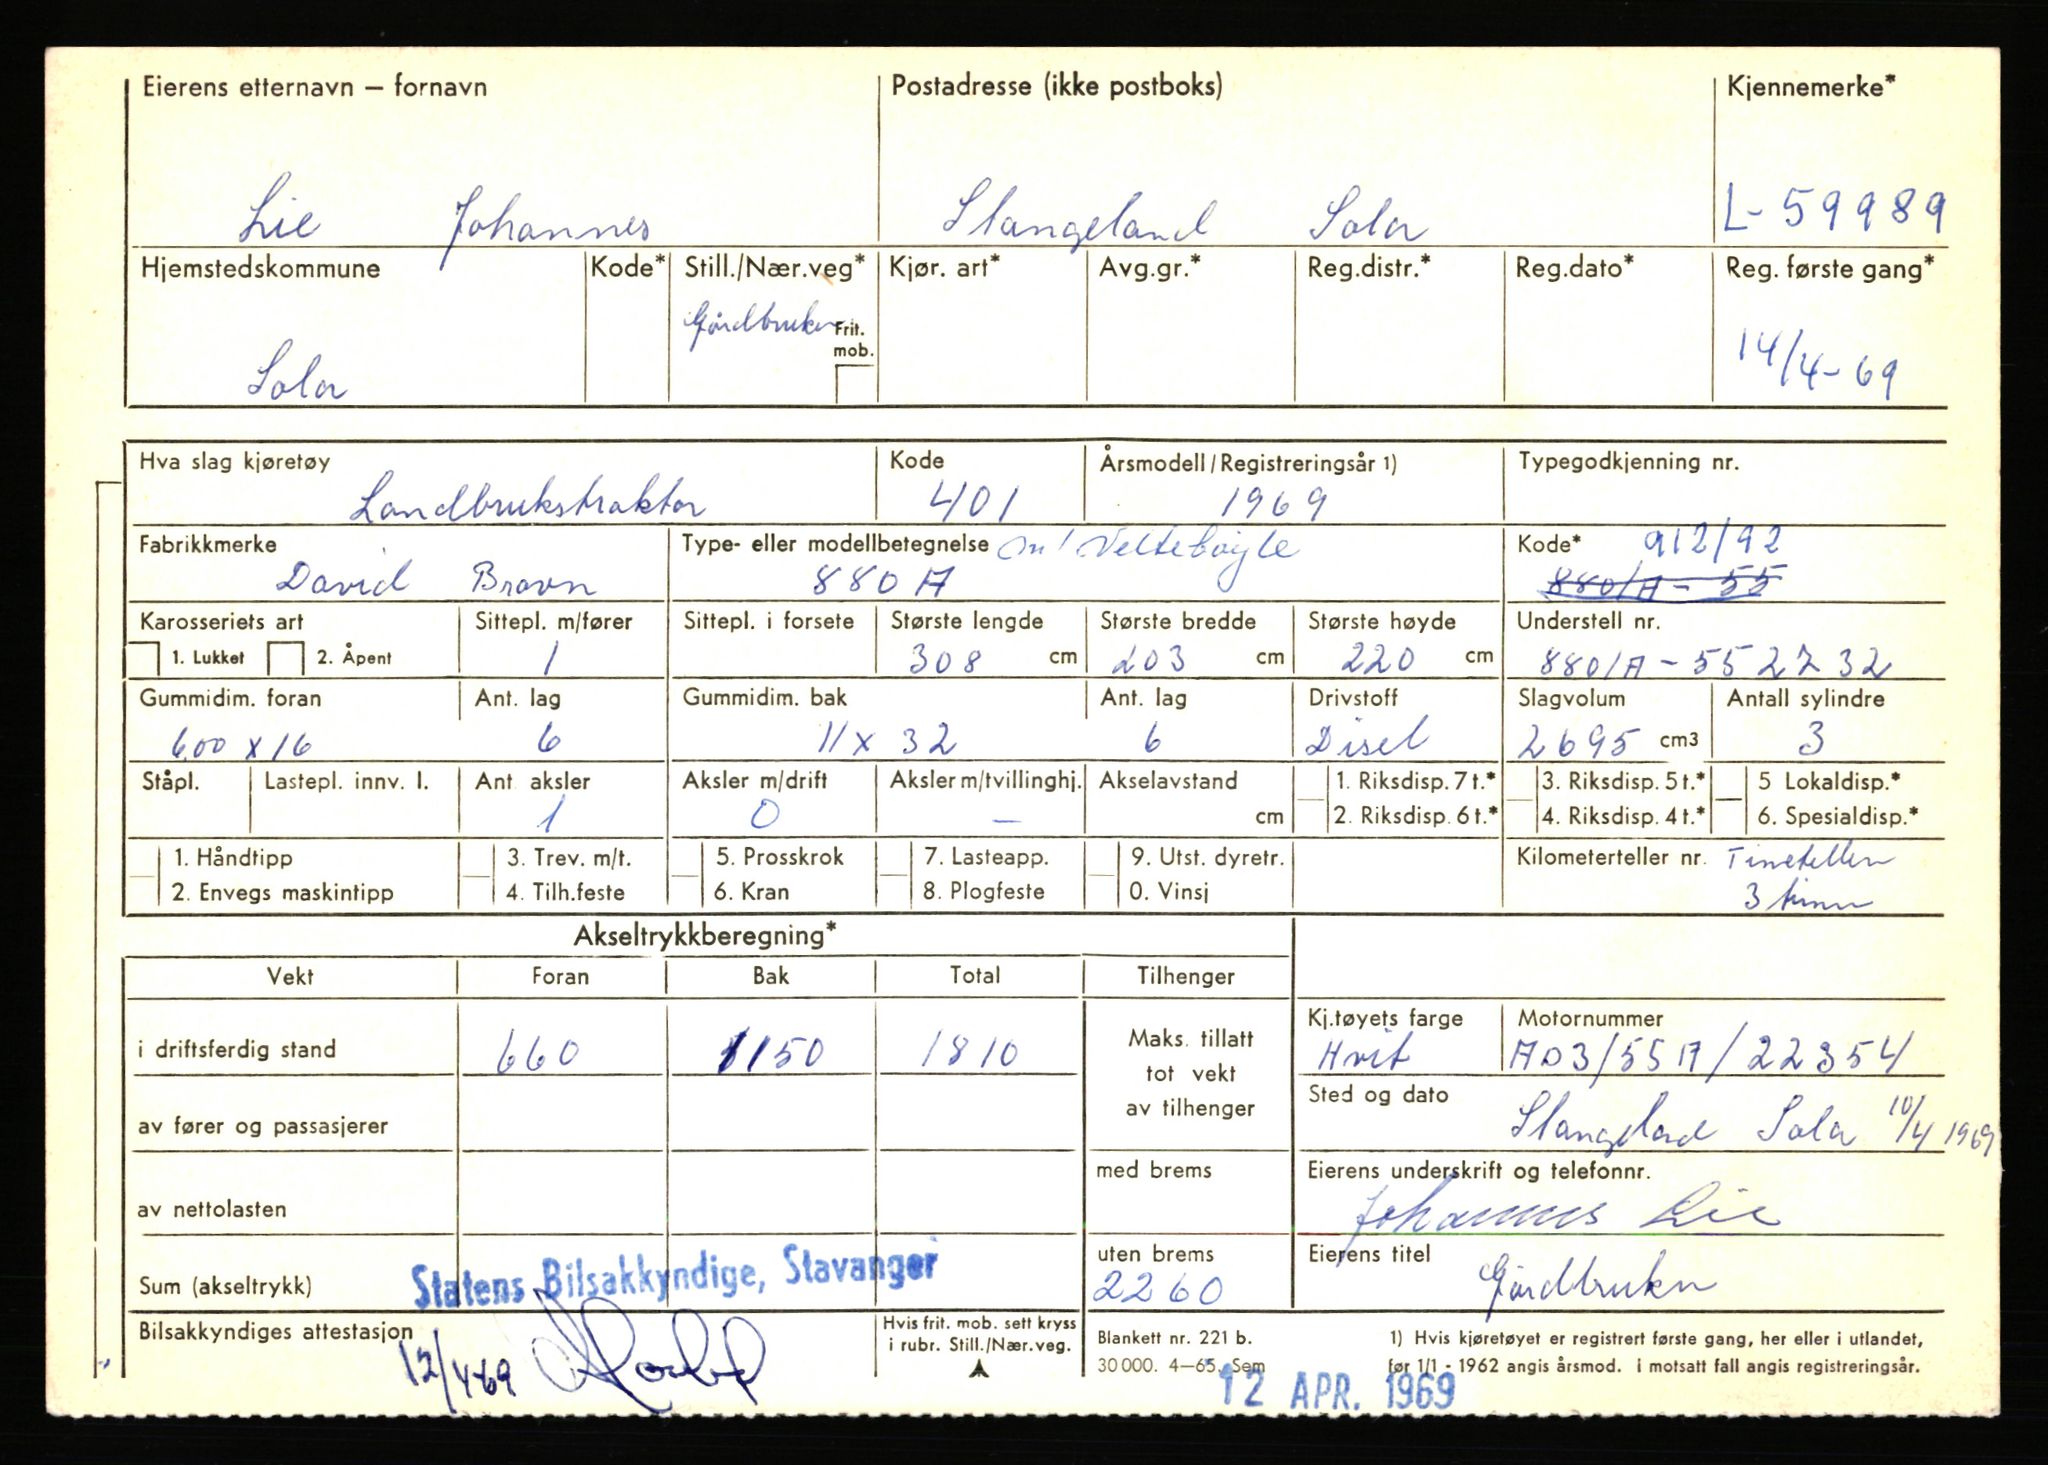 Eierens etternavn — fornavn Postadresse (ikke postboks) Kjennemerke*
Lie Johannes Stangeland Sola L-59989
Hjemstedskommune Kode* Still./Nær.veg* Kjør. art* Avg.gr.* Reg.distr.* Reg.dato* Reg. første gang*
Gårdbruker Frit. mob.
Sola 14/4-69
Hva slag kjøretøy Kode Årsmodell/Registreringsår 1) Typegodkjenning nr.
Landbrukstraktor 401 1969
Fabrikkmerke Type- eller modellbetegnelse m/ Veltebøyle Kode* 912/92
David Bravn 880 A 880/A - 55
Karosseriets art Sittepl. m/fører Sittepl. i forsete Største lengde Største bredde Største høyde Understell nr.
1. Lukket 2. Åpent 1 308 cm 203 cm 220 cm 880/A - 552732
Gummidim. foran Ant. lag Gummidim. bak Ant. lag Drivstoff Slagvolum Antall sylindre
6,00 x 16 6 11 x 32 6 Disel 2695 cm3 3
Ståpl. Lastepl. innv. l. Ant aksler Aksler m/drift Aksler m/tvillinghj. Akselavstand 1. Riksdisp. 7 t.* 3. Riksdisp. 5 t.* 5 Lokaldisp.*
1 0 — cm 2. Riksdisp. 6 t.* 4. Riksdisp. 4 t.* 6. Spesialdisp.*
1. Håndtipp 3. Trev. m/t. 5. Prosskrok 7. Lasteapp. 9. Utst. dyretr. Kilometerteller nr. Timeteller
2. Envegs maskintipp 4. Tilh.feste 6. Kran 8. Plogfeste 0. Vinsj 3
Akseltrykkberegning*
Vekt Foran Bak Total Tilhenger
i driftsferdig stand 660 1150 1810 Maks. tillatt tot vekt av tilhenger
Kj.tøyets farge Motornummer
Hvit AD3/55A/22354
av fører og passasjerer Sted og dato
Stangeland Sola 10/4 1969
av nettolasten med brems Eierens underskrift og telefonnr.
Johannes Lie
Sum (akseltrykk) uten brems Eierens titel
Statens Bilsakkyndige, Stavanger 2260 Gårdbruker
Bilsakkyndiges attestasjon Hvis frit. mob. sett kryss i rubr. Still./Nær.veg. Blankett nr. 221 b. 1) Hvis kjøretøyet er registrert første gang, her eller i utlandet,
12/4 69 30 000. 4—65. Sem før 1/1 - 1962 angis årsmod. i motsatt fall angis registreringsår.
12 APR. 1969